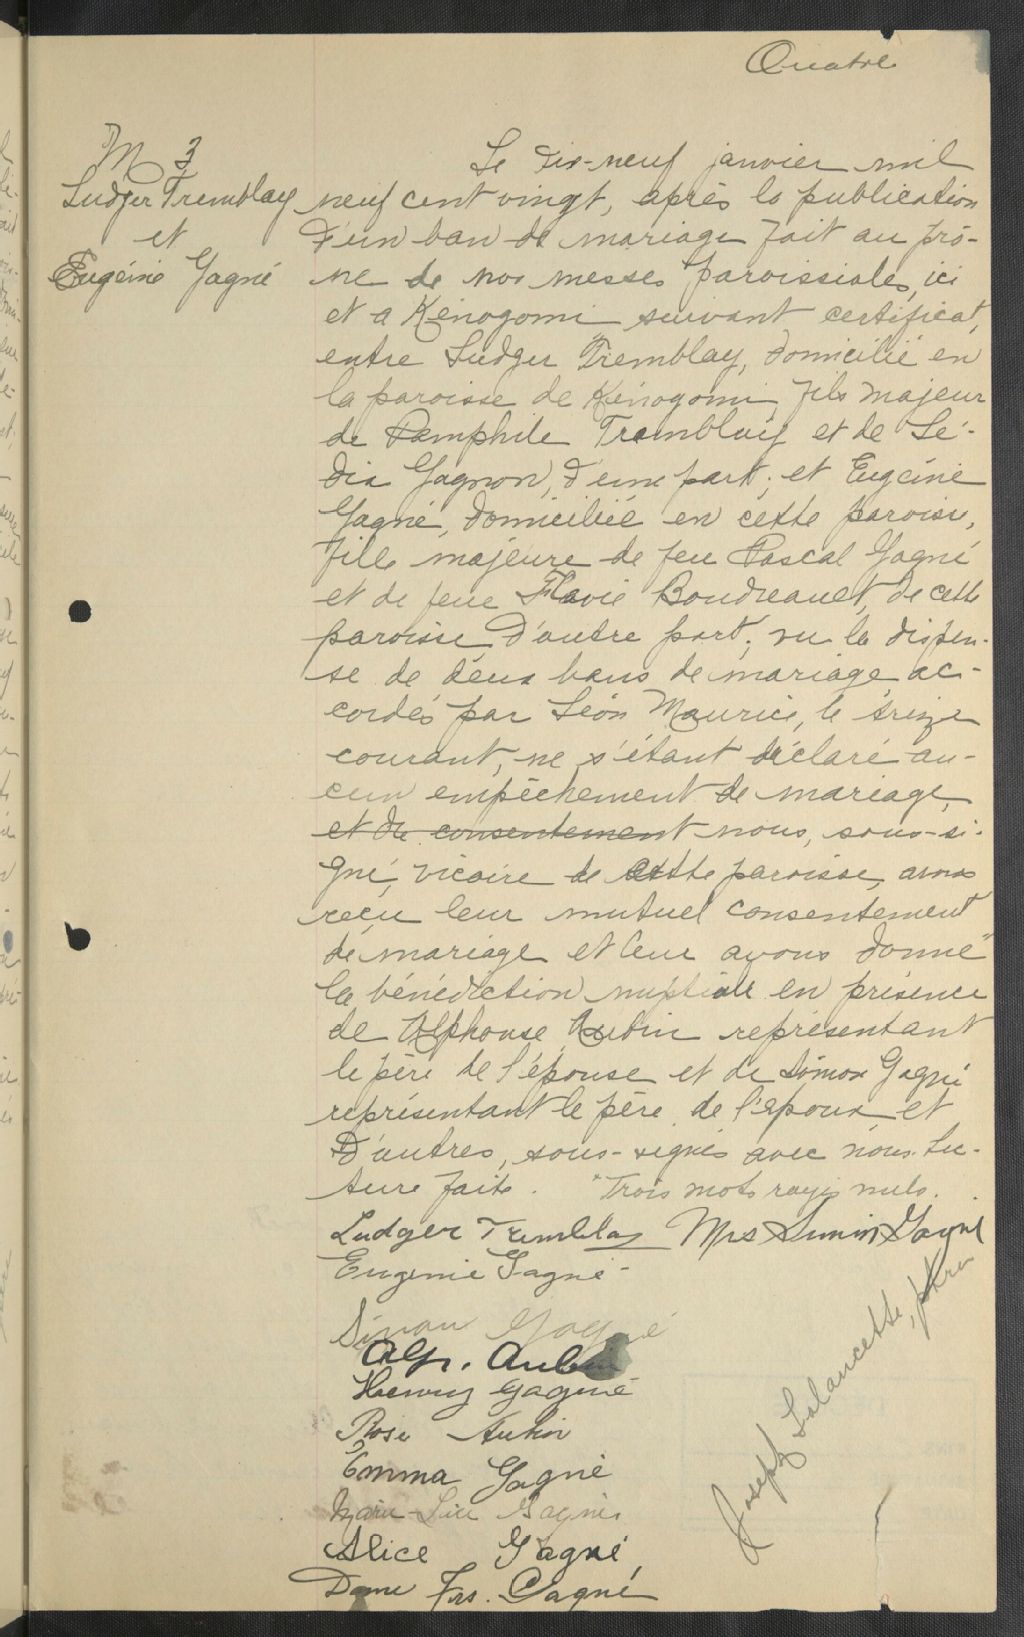 Quatre
M 3
Ludger Tremblay
et
Eugénie Gagné
Le dix-neuf janvier mil
neuf cent vingt, après la publication
d'un ban de mariage fait au prô-
ne de nos messes paroissiales, ici
et a Kénogomi suivant certificat,
entre Ludger Tremblay, domicilié en
la paroisse de Kénogomi, fils majeur
de Pamphile Tremblay et de Lé-
dia Gagnon, d'une part; et Eugénie
Gagné, domiciliée en cette paroisse,
fille majeure de feu Pascal Gagné
et de feue Flavie Boudreault, de cette
paroisse, d'autre part; vu la dispen-
se de deux bans de mariage ac-
cordés par Léon Maurice, le treize
courant, ne s'étant déclaré au-
cun empêchement de mariage,
et du consentement nous, sous-si-
gné, vicaire de cette paroisse, avons
reçu leur mutuel consentement
de mariage et leur avons donné
la bénédiction nuptiale en présence
de Alphonse Aubin représentant
le père de l'épouse et de Simon Gagné
représentant le père de l'époux et
d'autres, sous-signés avec nous. Lec-
ture faite. Trois mots rayés nuls.
Ludger Tremblay Mrs Simon Gagné
Eugenie Gagné
Simon Gagné
Alp. Aubin
Henry Gagné
Rose Aubin
Emma Gagné
Gagné
Alice Gagné
Dame Frs. Gagné
Joseph Lalancette, ptre